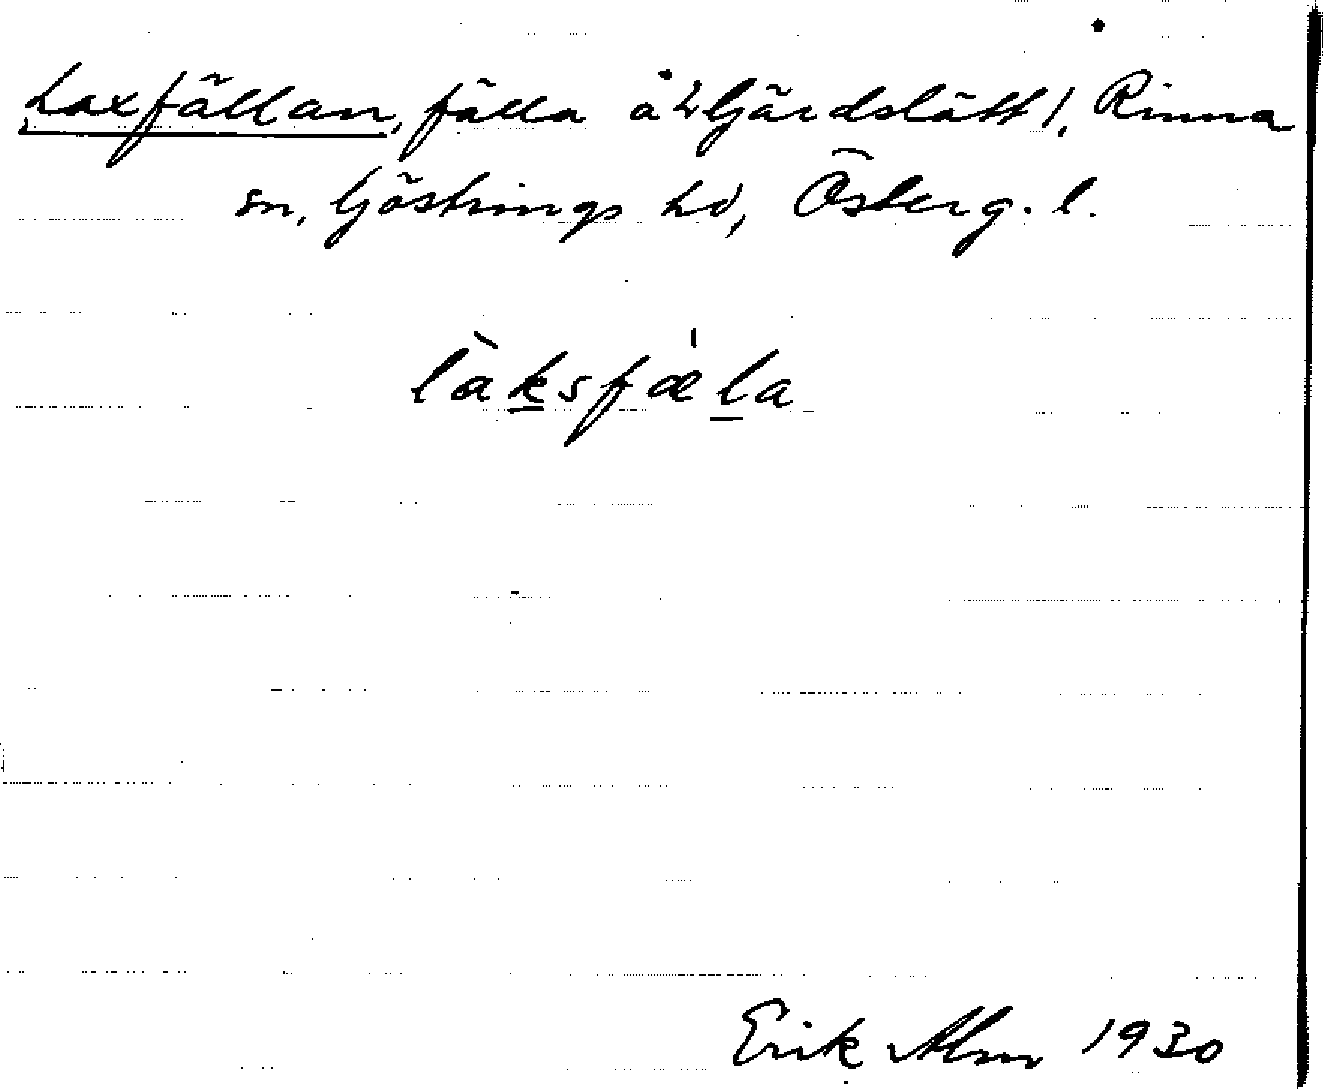 Laxfällan, fälla å 2 Gärdslätt 1, Rinna
sn, Göstrings hd, Österg. l.
làksfæ̍la
Erik Alm 1930